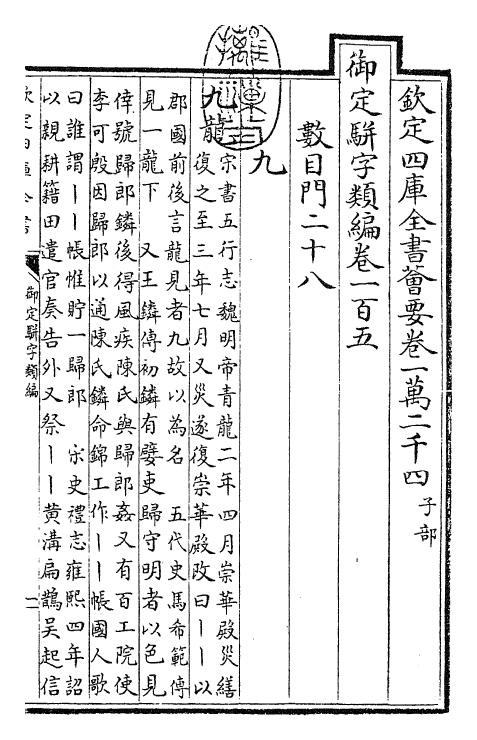 欽定四庫全書薈要卷一萬二千四 子部
御定駢字類編卷一百五
數目門二十八
九
九龍
宋書五行志魏明帝青龍二年四月崇華殿災繕
復之至三年七月又災遂復崇華殿改曰丨丨以
郡國前後言龍見者九故以為名 五代史馬希範傳
見一龍下 又王鏻傳初鏻有嬖吏歸守明者以色見
倖號歸郎鏻後得風疾陳氏與歸郎姦又有百工院使
李可殷因歸郎以通陳氏鏻命錦工作丨丨帳國人歌
曰誰謂丨丨帳惟貯一歸郎 宋史禮志雍熙四年詔
以親耕籍田遣官奏告外又祭丨丨黃溝扁鵲吳起信
欽定四庫全書
御定駢字類編
一